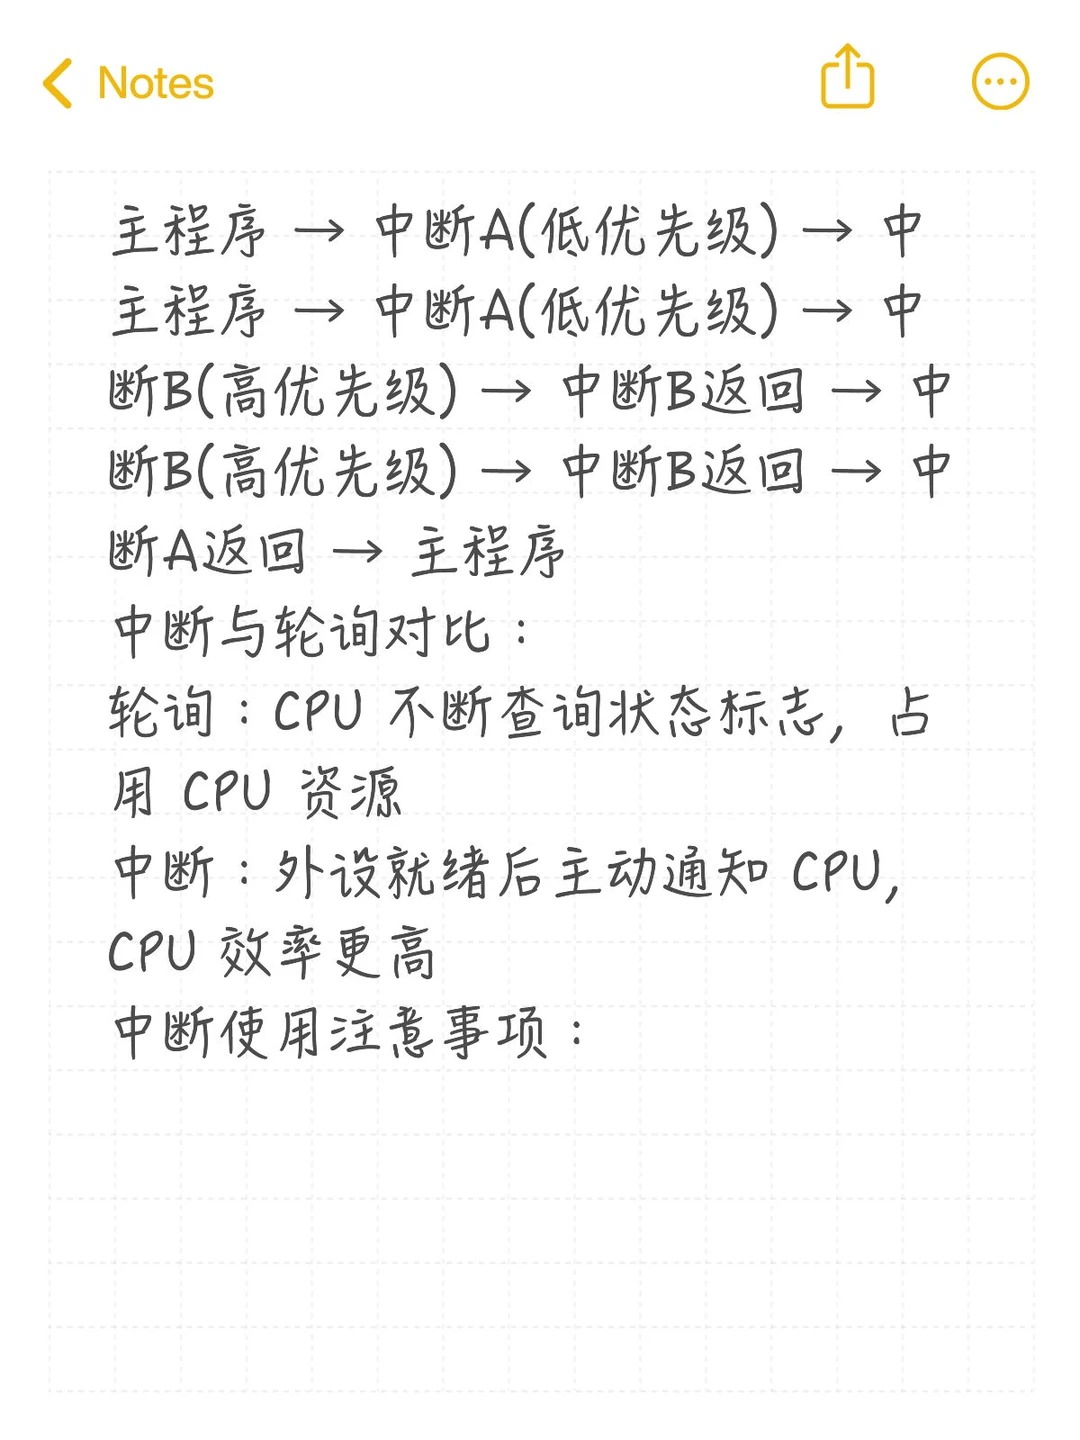 Notes
主程序 → 中断A(低优先级) → 中
主程序 → 中断A(低优先级) → 中
断B(高优先级) → 中断B返回 → 中
断B(高优先级) → 中断B返回 → 中
断A返回 → 主程序
中断与轮询对比：
轮询：CPU 不断查询状态标志，占
用 CPU 资源
中断：外设就绪后主动通知 CPU，
CPU 效率更高
中断使用注意事项：